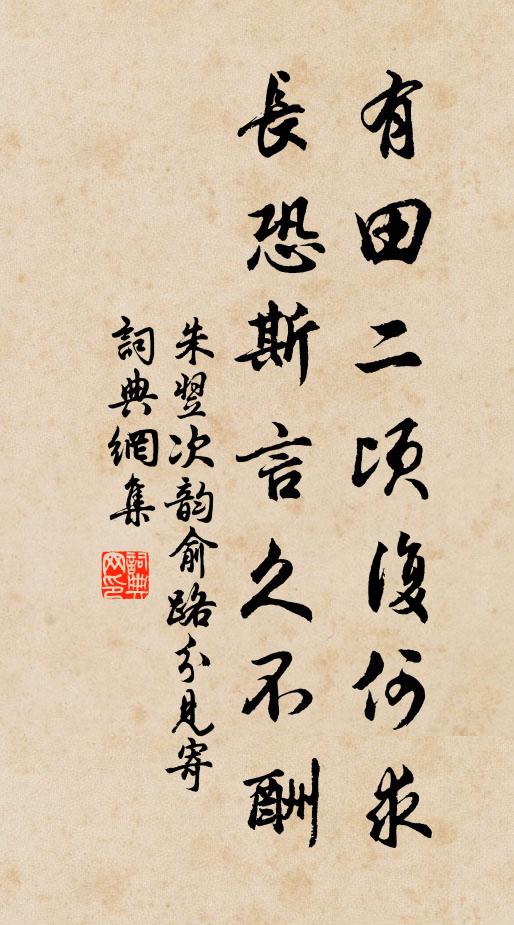 有田二頃復何求
長恐斯言久不酬
朱翌次韵俞路分見寄
詞典網集
詞典网印